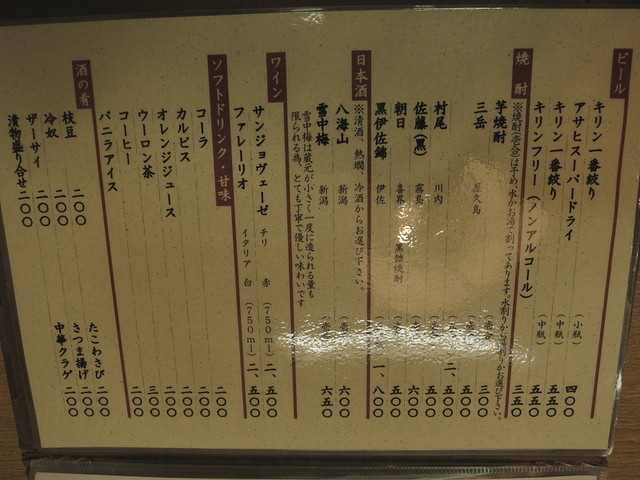 ビール
キリン一番絞り
アサヒスーパードライ （小瓶） 四〇〇
キリン一番絞り （中瓶） 五五〇
キリンフリー（ノンアルコール） （中瓶） 五五〇
焼酎
※焼酎(壱合)は予め、水かお湯で割ってあります。水割りかお湯割りかお選び下さい。
三五〇
芋焼酎 三〇〇
三岳 屋久島 五〇〇
村尾 川内 二、五〇〇
佐藤（黒） 霧島 六〇〇
朝日 喜界 黒糖焼酎 五〇〇
黒伊佐錦 伊佐 一、八〇〇
日本酒
※清酒、熱燗、冷酒からお選び下さい。
八海山 新潟 六〇〇
雪中梅 新潟 六五〇
雪中梅は蔵元が小さく一度に造られる量も
限られる為、とても丁寧で優しい味わいです
ワイン
サンジョヴェーゼ チリ 赤 （750ml） 二、五〇〇
ファレーリオ イタリア 白 （750ml） 二、五〇〇
ソフトドリンク・甘味
コーラ 二〇〇
カルピス 二〇〇
オレンジジュース 二〇〇
ウーロン茶 三〇〇
コーヒー 二〇〇
バニラアイス
酒の肴
枝豆 二〇〇
冷奴 二〇〇
ザーサイ 二〇〇
漬物盛り合せ 二〇〇
たこわさび 二〇〇
さつま揚げ 二〇〇
中華クラゲ 二〇〇